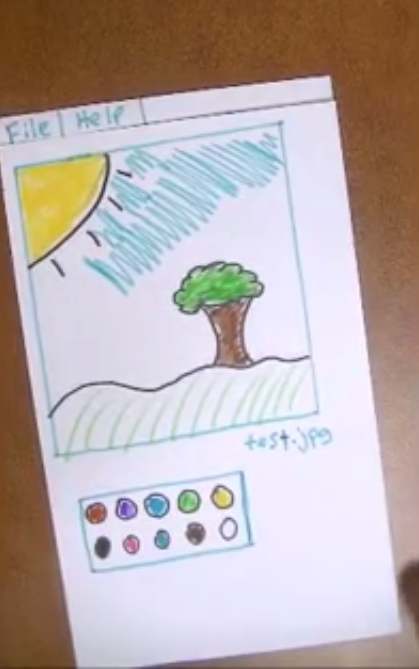 File Help
test.jpg